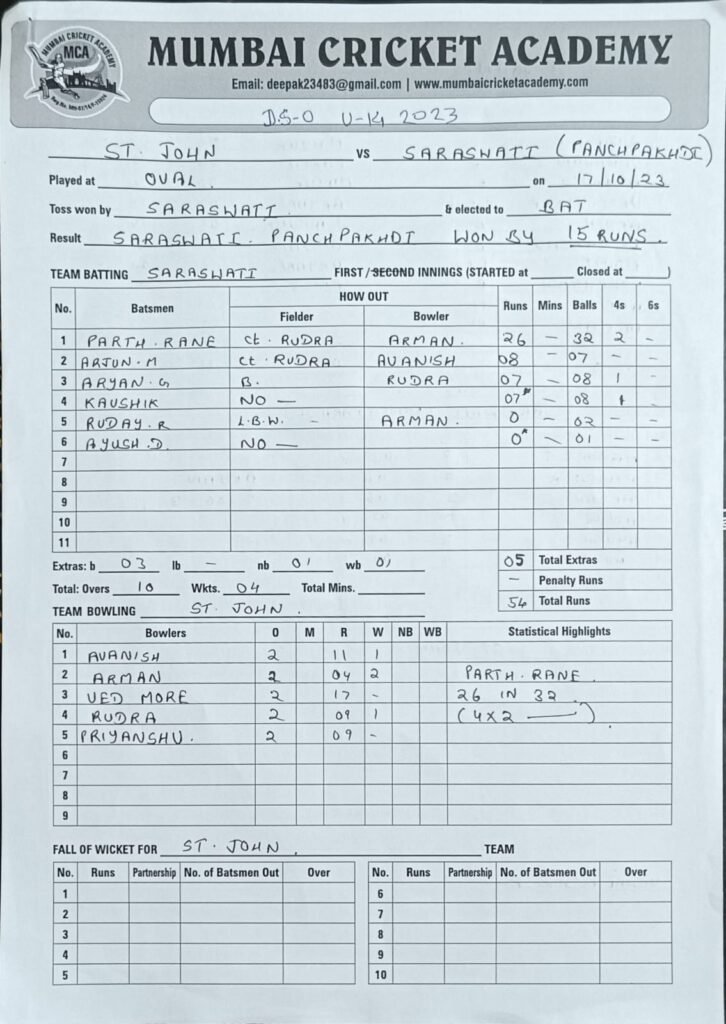 MUMBAI CRICKET ACADEMY
MCA
MUMBAI CRICKET ACADEMY
Email: deepak23483@gmail.com | www.mumbaicricketacademy.com
DSO U-14 2023
ST. JOHN VS SARASWATI (PANCHPAKHDI)
Played at OVAL on 17/10/23
Toss won by SARASWATI & elected to BAT
Result SARASWATI. PANCHPAKHDI WON BY 15 RUNS.
TEAM BATTING SARASWATI FIRST / SECOND INNINGS (STARTED at Closed at )
No. Batsmen HOW OUT Runs Mins Balls 4s 6s
Fielder Bowler
1 PARTH. RANE Ct. RUDRA ARMAN. 26 — 32 2 -
2 ARJUN. M Ct. RUDRA AVANISH 08 — 07 - -
3 ARYAN. G B. RUDRA 07 — 08 1 -
4 KAUSHIK NO — 07* — 08 1 -
5 RUDAY. R L.B.W. - ARMAN. 0 — 02 - -
6 AYUSH. D. NO — 0* — 01 - -
7
8
9
10
11
Extras: b 03 lb - nb 01 wb 01 05 Total Extras
- Penalty Runs
Total: Overs 10 Wkts. 04 Total Mins. 54 Total Runs
TEAM BOWLING ST. JOHN.
No. Bowlers O M R W NB WB Statistical Highlights
1 AVANISH 2 11 1
2 ARMAN 2 04 2 PARTH. RANE.
3 VED MORE 2 17 - 26 IN 32
4 RUDRA 2 09 1 (4X2 —)
5 PRIYANSHU. 2 09 -
6
7
8
9
FALL OF WICKET FOR ST. JOHN. TEAM
No. Runs Partnership No. of Batsmen Out Over No. Runs Partnership No. of Batsmen Out Over
1 6
2 7
3 8
4 9
5 10